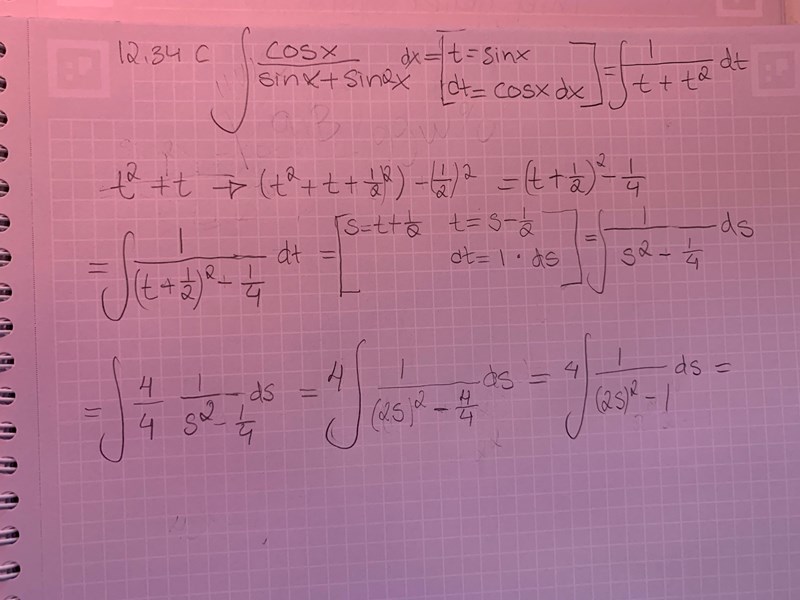 12.34 c ∫ cosx/(sinx+sin2x) dx = [t=sinx dt=cosx dx] = ∫ 1/(t+t²) dt
t²+t → (t²+t+(1/2)²)-(1/2)² = (t+1/2)²-1/4
= ∫ 1/((t+1/2)²-1/4) dt = [s=t+1/2 t=s-1/2 dt=1·ds] = ∫ 1/(s²-1/4) ds
= ∫ 4/4 1/(s²-1/4) ds = 4∫ 1/((2s)²-4/4) ds = 4∫ 1/((2s)²-1) ds =